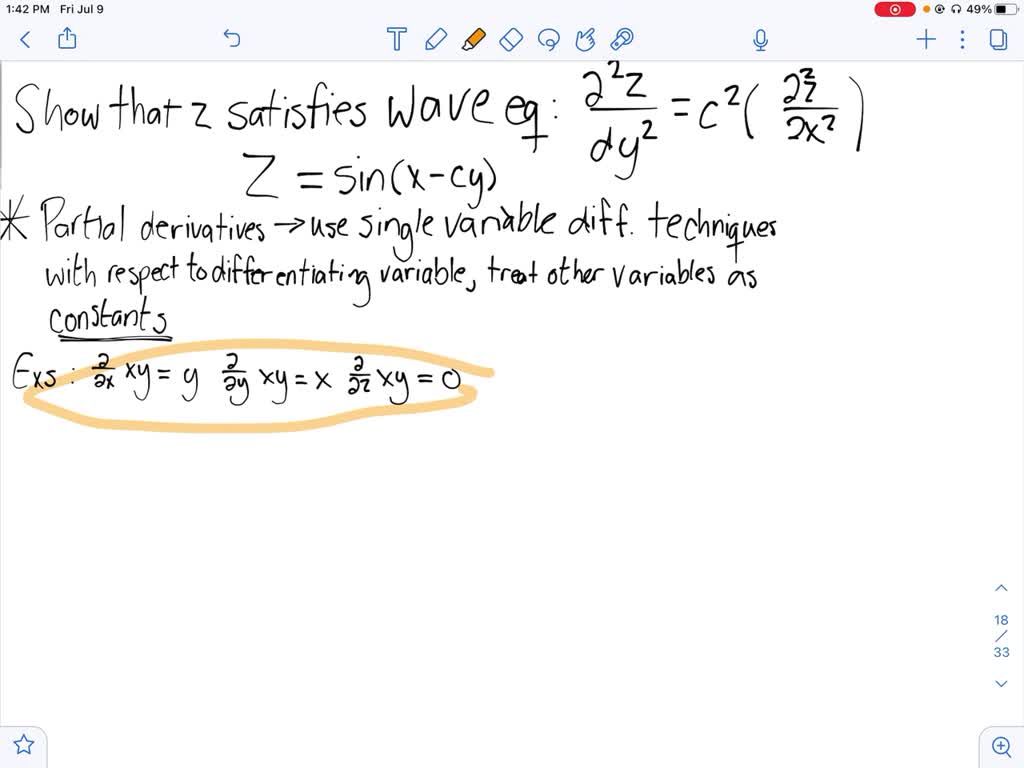 1:42 PM Fri Jul 9 49%
Show that z satisfies wave eq: ∂²z/dy² = c²(∂²z/∂x²)
Z = sin(x-cy)
* Partial derivatives → use single variable diff. techniques
with respect to differentiating variable, treat other variables as
constants
Exs: ∂/∂x xy = y ∂/∂y xy = x ∂/∂z xy = 0
18
/
33